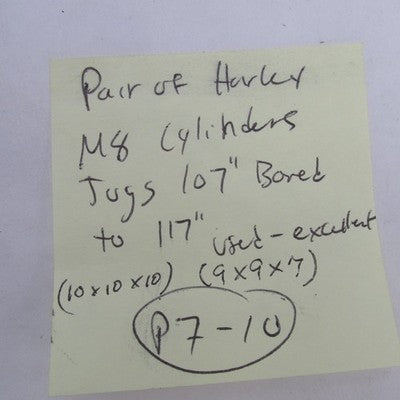 Pair of Harley
M8 Cylinders
Jugs 107" Bored
to 117" used - excellent
(10x10x10) (9x9x7)
P7-10